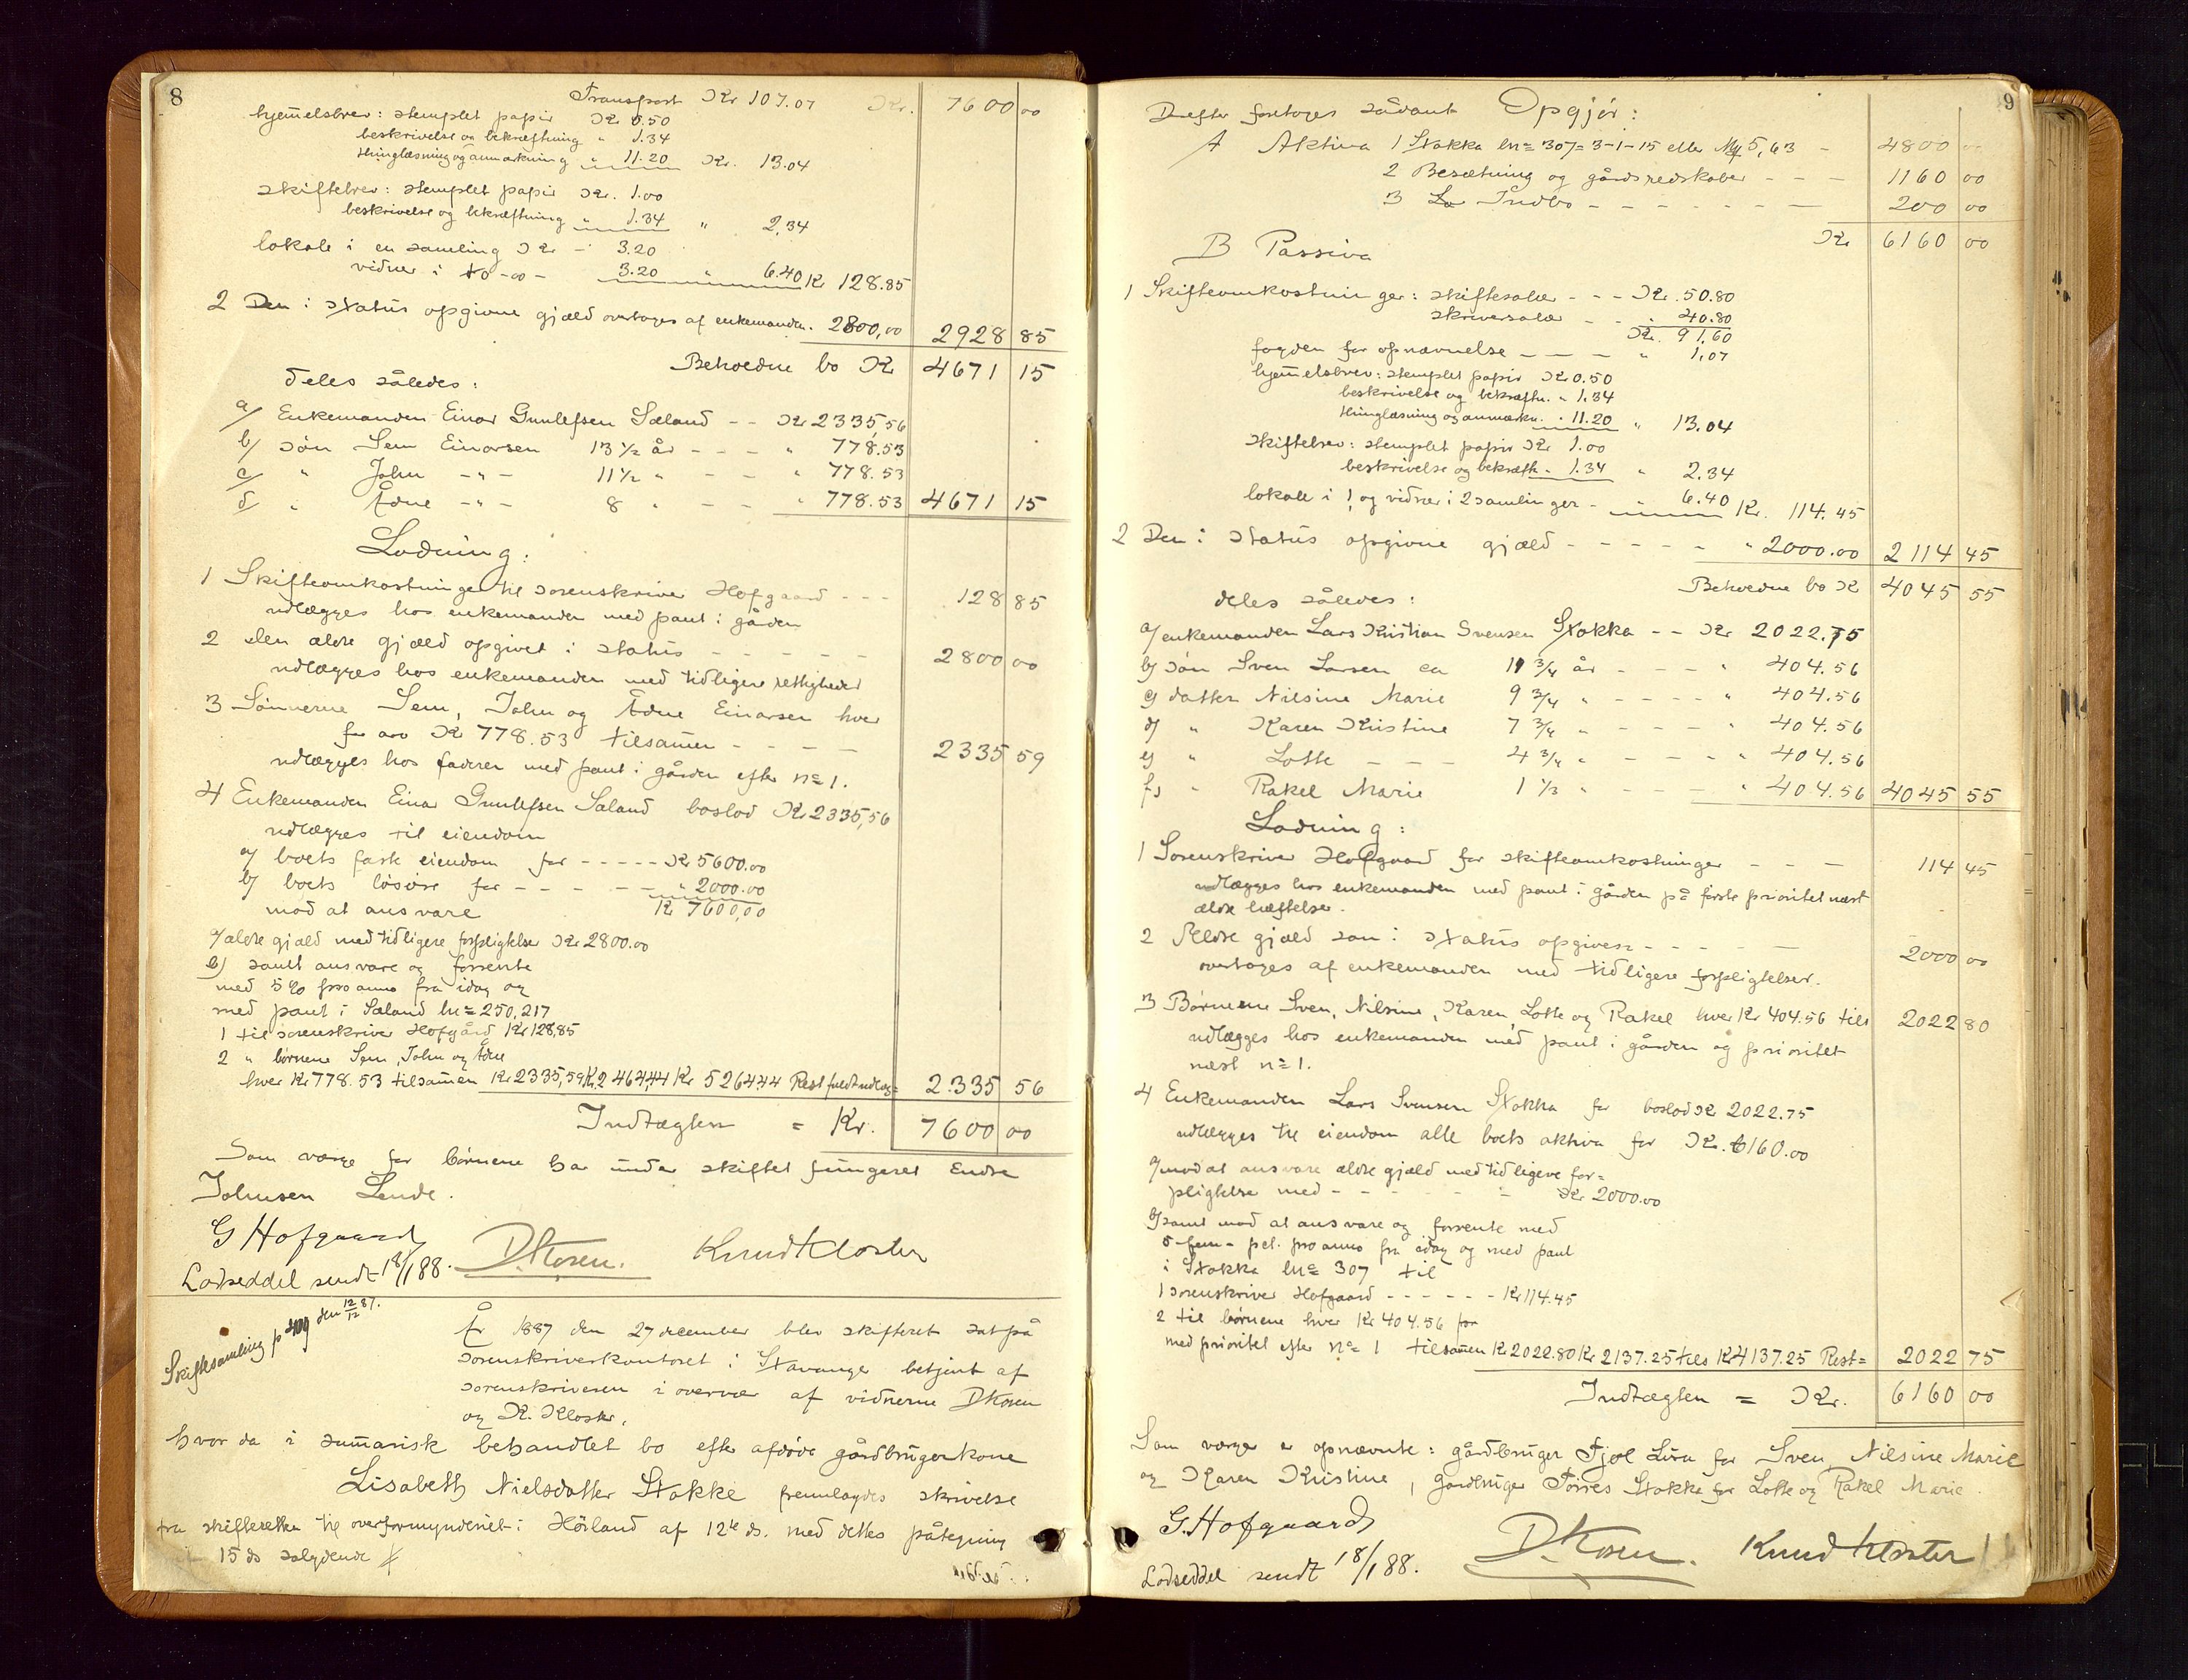 8
Transport Kr 107.07 Kr. 7600 00
hjemelsbrev: stemplet papir Kr 0.50
beskrivelse og bekræftning " 1.34
thinglæsning og anmærkning " 11.20 Kr. 13.04
skiftebrev: stemplet papir Kr. 1.00
beskrivelse og bekræftning " 1.34 " 2,34
lokale i en samling Kr - 3.20
vidner i to -oo- 3.20 " 6.40 Kr 128.85
2 Den i status opgivne gjæld overtages af enkemanden. 2800,00 2928 85
Beholdne bo Kr 4671 15
deles således:
a/ Enkemanden Einar Gunlefsen Sæland -- Kr 2335,56
b/ søn Sem Einarsen 13 1/2 år - - - " 778.53
c/ " John -"- 11 1/2 " - - " 778.53
d/ " Ådne -"- 8 " - - " 778.53 4671 15
Lodning:
1 Skifteomkostninger til sorenskriver Hofgaard --- 128 85
udlægges hos enkemanden med pant i gården
2 den ældre gjæld opgivet i status - - - - - 2800 00
udlægges hos enkemanden med tidligere rettigheder
3 Sønnerne Sem, John og Ådne Einarsen hver
for arv Kr 778.53 tilsamen - - - - 2335 59
udlægges hos faderen med pant i gården efter n= 1.
4 Enkemanden Einar Gunlefsen Sæland boslod Kr 2335,56
udlægges til eiendom
a/ boets faste eiendom for ----- Kr 5600.00
b/ boets løsøre for - - - - - " 2000.00
mod at ansvare Kr 7600,00
a/ ældre gjæld med tidligere forpligtelse Kr 2800.00
b/ samt ansvare og forrente
med 5 % pro anno fra idag og
med pant i Sæland ln= 250, 217
1 til sorenskriver Hofgård Kr 128,85
2 " børnene Sem, John og Ådne
hver Kr 778.53 tilsamen Kr 2335,59 Kr. 2464,44 Kr 5264.44 Rest fuldt udlæg= 2335 56
Indtægten = Kr. 7600 00
Som værge for børnene har under skiftet fungeret Endre
Johnsen Lende.
G Hofgaard D. Kosen. Knud Kloster
Lodseddel sendt 18/1 88.
Skiftesamling p 409 den 12/12 87.
År 1887 den 27 december blev skifteret sat på
sorenskriverkontoret i Stavanger betjent af
sorenskriveren i overvær af vidnerne D Kosen
og K. Kloster,
hvor da i sumarisk behandlet bo efter afdøde gårdbrugerkone
Lisabeth Nielsdatter Stokke fremlagdes skrivelse
fra skifteretten til overformynderiet i Høiland af 12te ds. med dettes påtegning
15 ds salydende
9
Derefter foretoges sådant Opgjør:
A Aktiva 1 Stokka ln= 307= 3-1-15 eller My 5,63 - 4800 00
2 Besætning og gårdsredskaber - - - 1160 00
3 Indbo - - - - - - - 200 00
Kr 6160 00
B Passiva
1 Skifteomkostninger: skiftesalær - - - Kr. 50.80
skriversalær - - " 40.80
Kr. 91,60
fogden for opnævnelse - - - - " 1,07
hjemelsbrev: stemplet papir Kr 0.50
beskrivelse og bekræftn. " 1,34
thinglæsning og anmærkn. " 11.20 " 13.04
skiftebrev: stemplet papir Kr 1.00
beskrivelse og bekræft. - 1.34 " 2.34
lokale i 1 og vidner i 2 samlinger - " 6.40 Kr. 114.45
2 Den i status opgivne gjæld - - - - - " 2000.00 2114 45
Beholdne bo Kr 4045 55
deles således:
a/ enkemanden Lars Kristian Svensen Stokka -- Kr 2022.75
b/ søn Sven Larsen ca 11 3/4 år - - - " 404.56
c/ datter Nilsine Marie 9 3/4 " - - - - " 404.56
d/ " Karen Kristine 7 3/4 " - - - - " 404.56
e/ " Lotte - - - 4 3/4 " - - - - " 404.56
f/ " Rakel Marie 1 1/3 " - - - - " 404.56 4045 55
Lodning:
1 Sorenskriver Hofgaard for skifteomkostninger - - - 114 45
udlægges hos enkemanden med pant i gården på første prioritet næst
ældre hæftelser.
2 Ældre gjæld som i status opgiven - - - - - 2000 00
overtages af enkemanden med tidligere forpligtelser.
3 Børnene Sven, Nilsine, Karen, Lotte og Rakel hver Kr 404.56 tils 2022 80
udlægges hos enkemanden med pant i gården og prioritet
næst n= 1.
4 Enkemanden Lars Svensen Stokka for boslod Kr 2022.75
udlægges til eiendom alle boets aktiva for Kr. 6160.00
a/ mod at ansvare ældre gjæld med tidligere for=
pligtelse med - - - - - - Kr 2000.00
b/ samt mod at ansvare og forrente med
5-fem- pct. pro anno fra idag og med pant
i Stokka ln= 307 til
1 sorenskriver Hofgaard - - - - - - Kr 114.45
2 til børnene hver Kr 404.56 for
med prioritet efter n= 1 tilsamen Kr 2022.80 Kr 2137.25 tils Kr 4137.25 Rest= 2022 75
Indtægten = Kr. 6160 00
Som værger er opnævnte: gårdbruger Fjøl Lura for Sven, Nilsine Marie
og Karen Kristine, gårdbruger Tørres Stokka for Lotte og Rakel Marie.
G. Hofgaard D. Kosen. Knud Kloster
Lodseddel sendt 18/1 88.